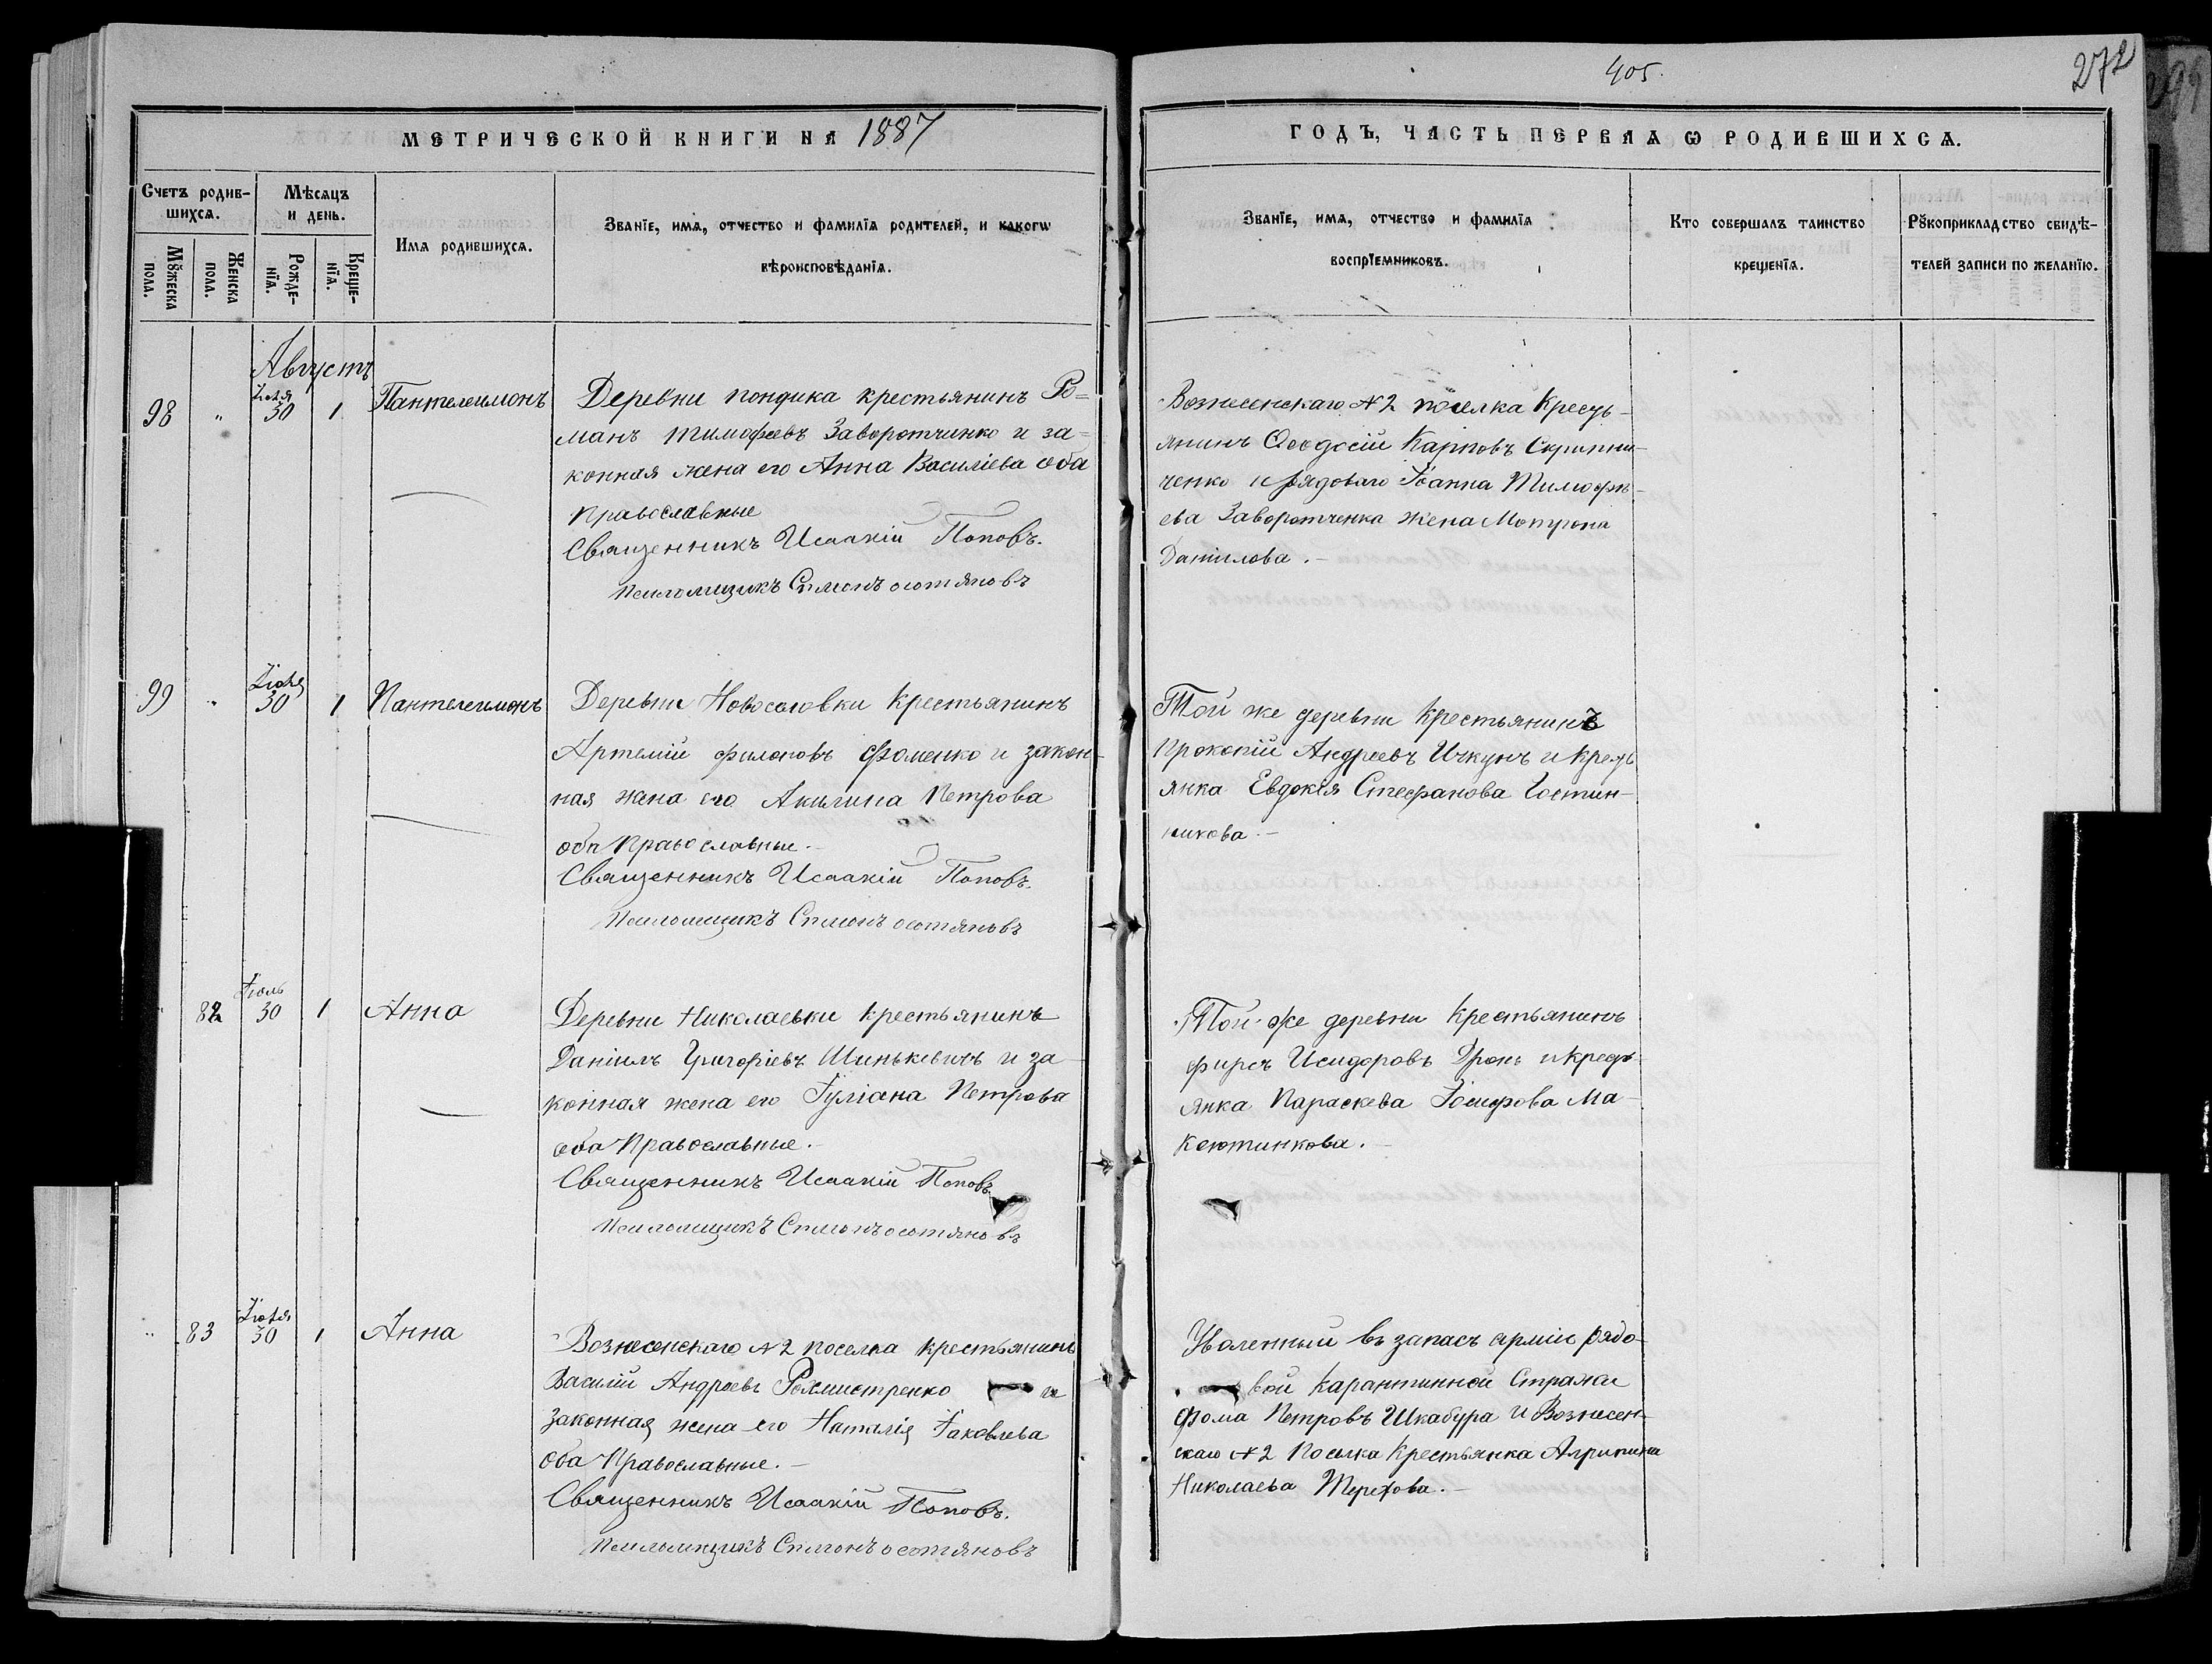 405.
272
МЕТРИЧЕСКОЙ КНИГИ НА 1887
ГОДЪ, ЧАСТЬ ПЕРВАѦ Ѡ РОДИВШИХСѦ.
Счетъ родив-
шихсѧ.
Мѣсѧцъ
и день.
Мꙋжеска
пола.
Женска
пола.
Рожде-
нїѧ.
Креще-
нїѧ.
Имѧ родившихсѧ.
Званїе, имѧ, отчество и фамилїѧ родителей, и какогѡ
вѣроисповѣданїѧ.
Званїе, имѧ, отчество и фамилїѧ
воспрїемниковъ.
Кто совершалъ таинство
крещенїѧ.
Рꙋкоприкладство свидѣ-
телей записи по желанїю.
Августъ
98 „ Іюля 30 1 Пантелеимонъ
Деревни пондика крестьянинъ Ро=
манъ Тимофеевъ Заворотчинко и за=
конная жена его Анна Василіева оба
православные
Священникъ Исаакій Поповъ.
Псаломщикъ Симонъ осотяновъ
Вознесенскаго №2 поселка Кресть-
янинъ Ѳеодосій Карповъ Скрипни-
ченко и рядоваго Іоанна Тимофѣ-
ева Заворотченка жена Мотрона
Данилова.-
99 „ Іюля 30 1 Пантелеимонъ
Деревни Новоселовки Крестьянинъ
Артемій филоновъ Фоменко и закон-
ная жена его Акилина Петрова
оба Православные.-
Священникъ Исаакій Поповъ.
Псаломщикъ Симонъ осотяновъ
Той же деревни Крестьянинъ
Прокопій Андреевъ Ичкунъ и Кресть
янка Евдокія Стефанова Гостин-
никова.-
82 Іюль 30 1 Анна
Деревни Николаевки крестьянинъ
Даніилъ Григоріевъ Шинькевичъ и за-
конная жена его Іуліана Петрова
оба Православные.-
Священникъ Исаакій Поповъ
Псаломщикъ Симонъ осотяновъ
Той-же деревни Крестьянинъ
фирсъ Исидоровъ Дронь и кресть-
янка Параскева Іосифова Ма-
ксютинкова.-
„ 83 Іюля 30 1 Анна
Вознесенскаго №2 поселка крестьянинъ
Василій Андреевъ и
законная жена его Наталія Іаковлева
Оба Православные.-
Священникъ Исаакій Поповъ.
Псаломщикъ Симонъ осотяновъ
Уволенный въ запасъ арміи рядо-
вой Карантинной Стражи
Фома Петровъ Шкабура и Вознесен-
скаго №2 Поселка Крестьянка Агрипина
Николаева Терехова.-